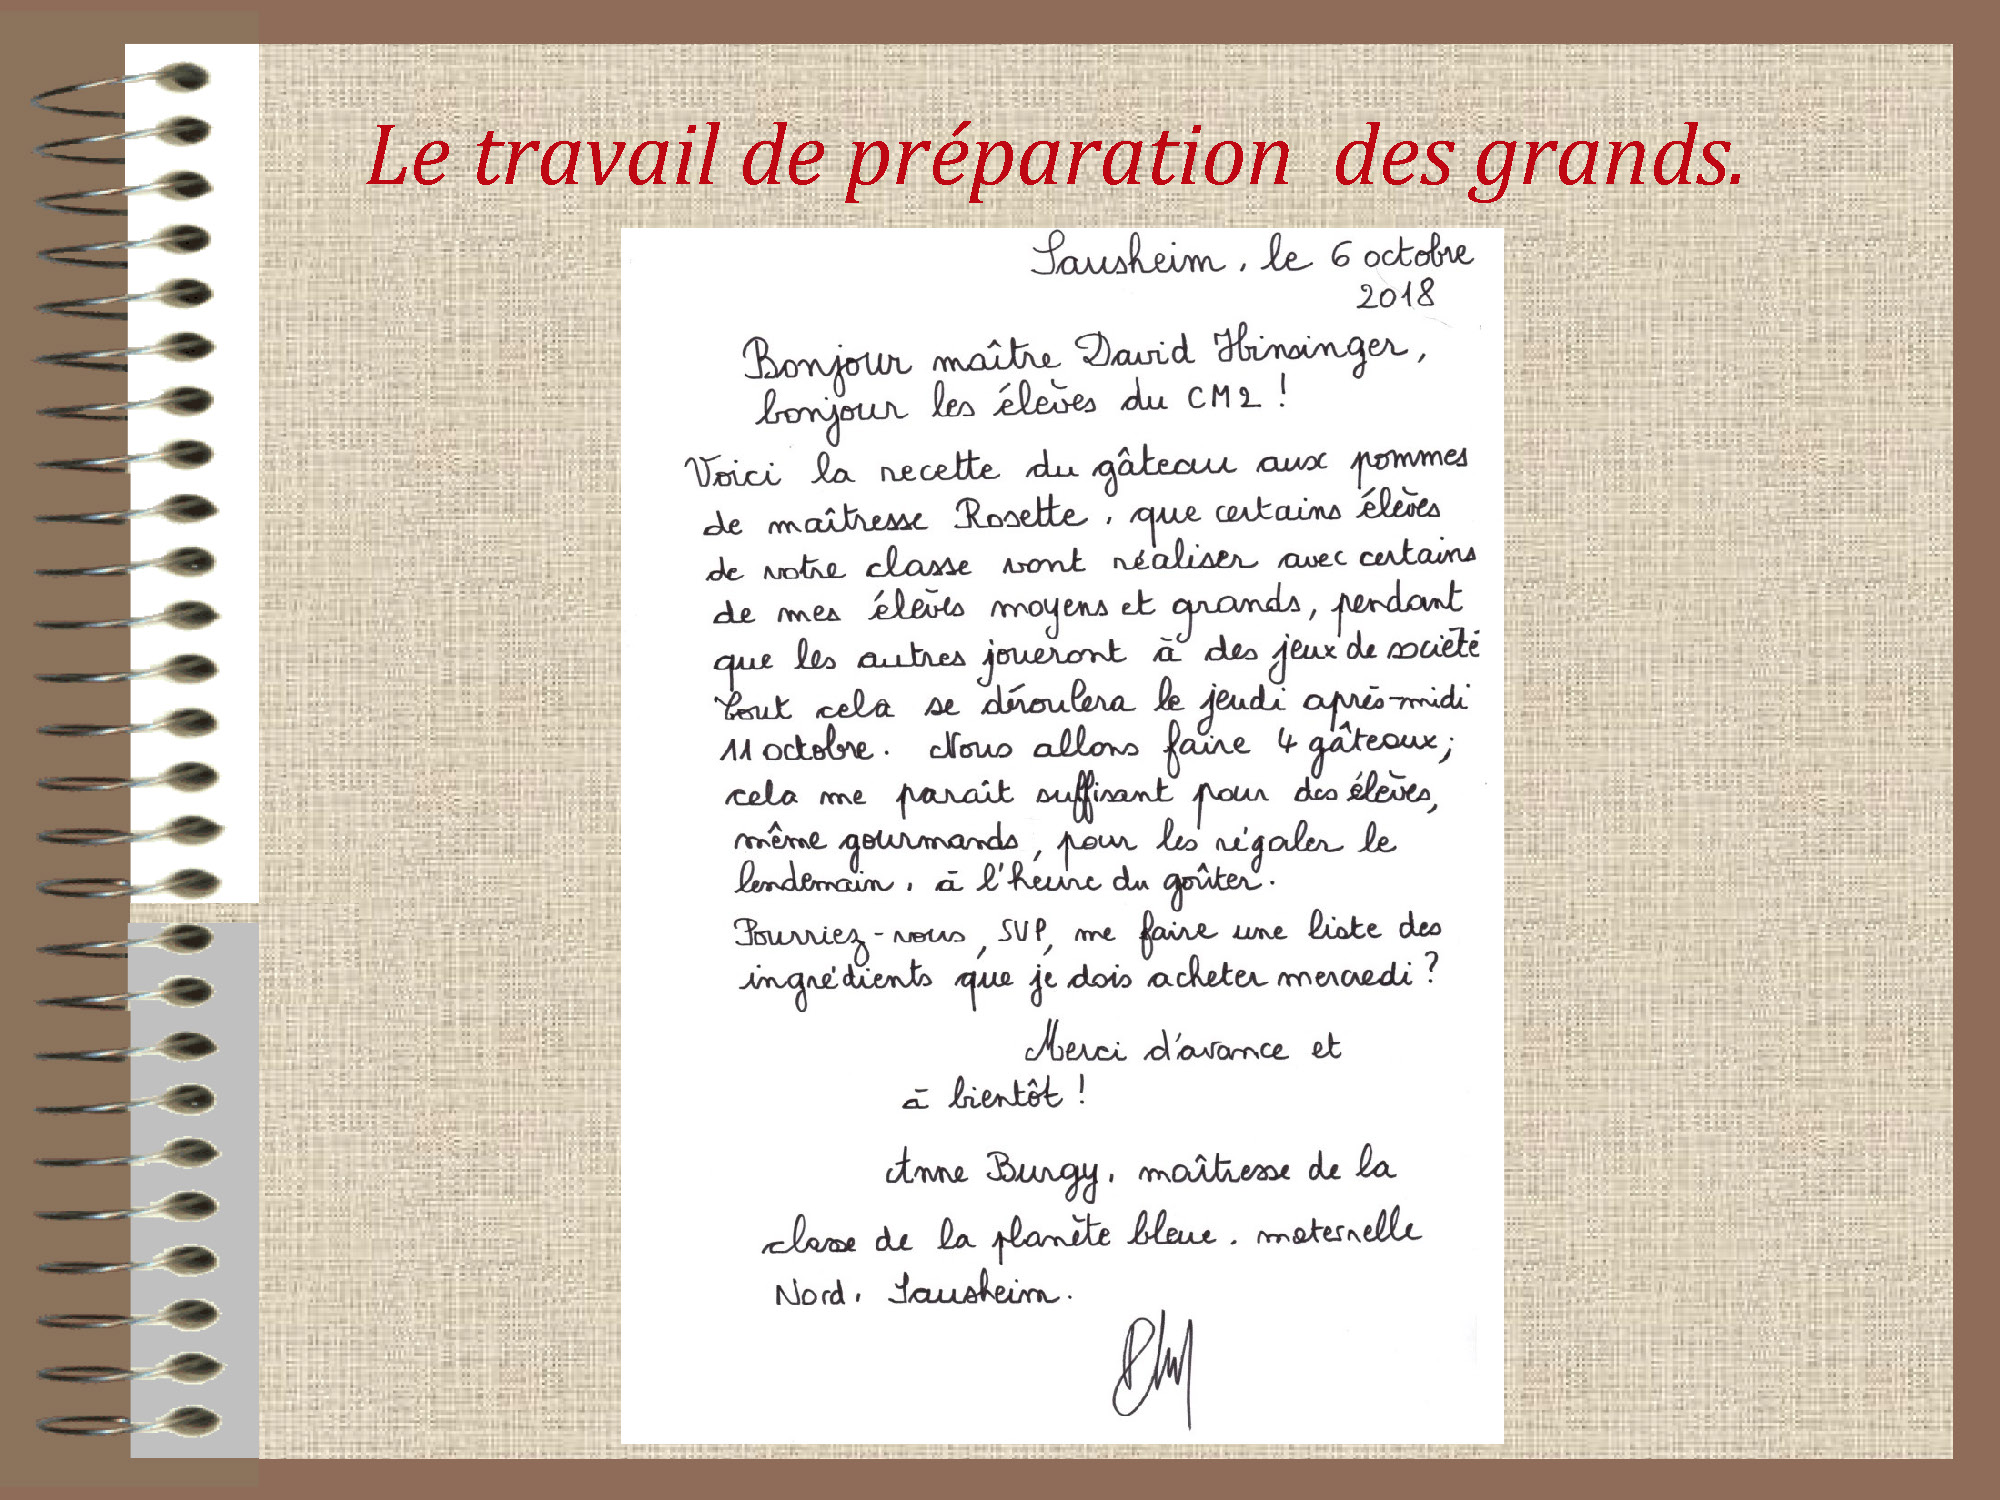 Le travail de préparation des grands.
Sausheim, le 6 octobre
2018
Bonjour maître David Hinsinger,
bonjour les élèves du CM2 !
Voici la recette du gâteau aux pommes
de maîtresse Rosette, que certains élèves
de votre classe vont réaliser avec certains
de mes élèves moyens et grands, pendant
que les autres joueront à des jeux de société
Tout cela se déroulera le jeudi après-midi
11 octobre. Nous allons faire 4 gâteaux;
cela me paraît suffisant pour des élèves,
même gourmands, pour les régaler le
lendemain, à l'heure du goûter.
Pourriez-vous, SVP, me faire une liste des
ingrédients que je dois acheter mercredi ?
Merci d'avance et
à bientôt !
Anne Burgy, maîtresse de la
classe de la planète bleue, maternelle
Nord, Sausheim.